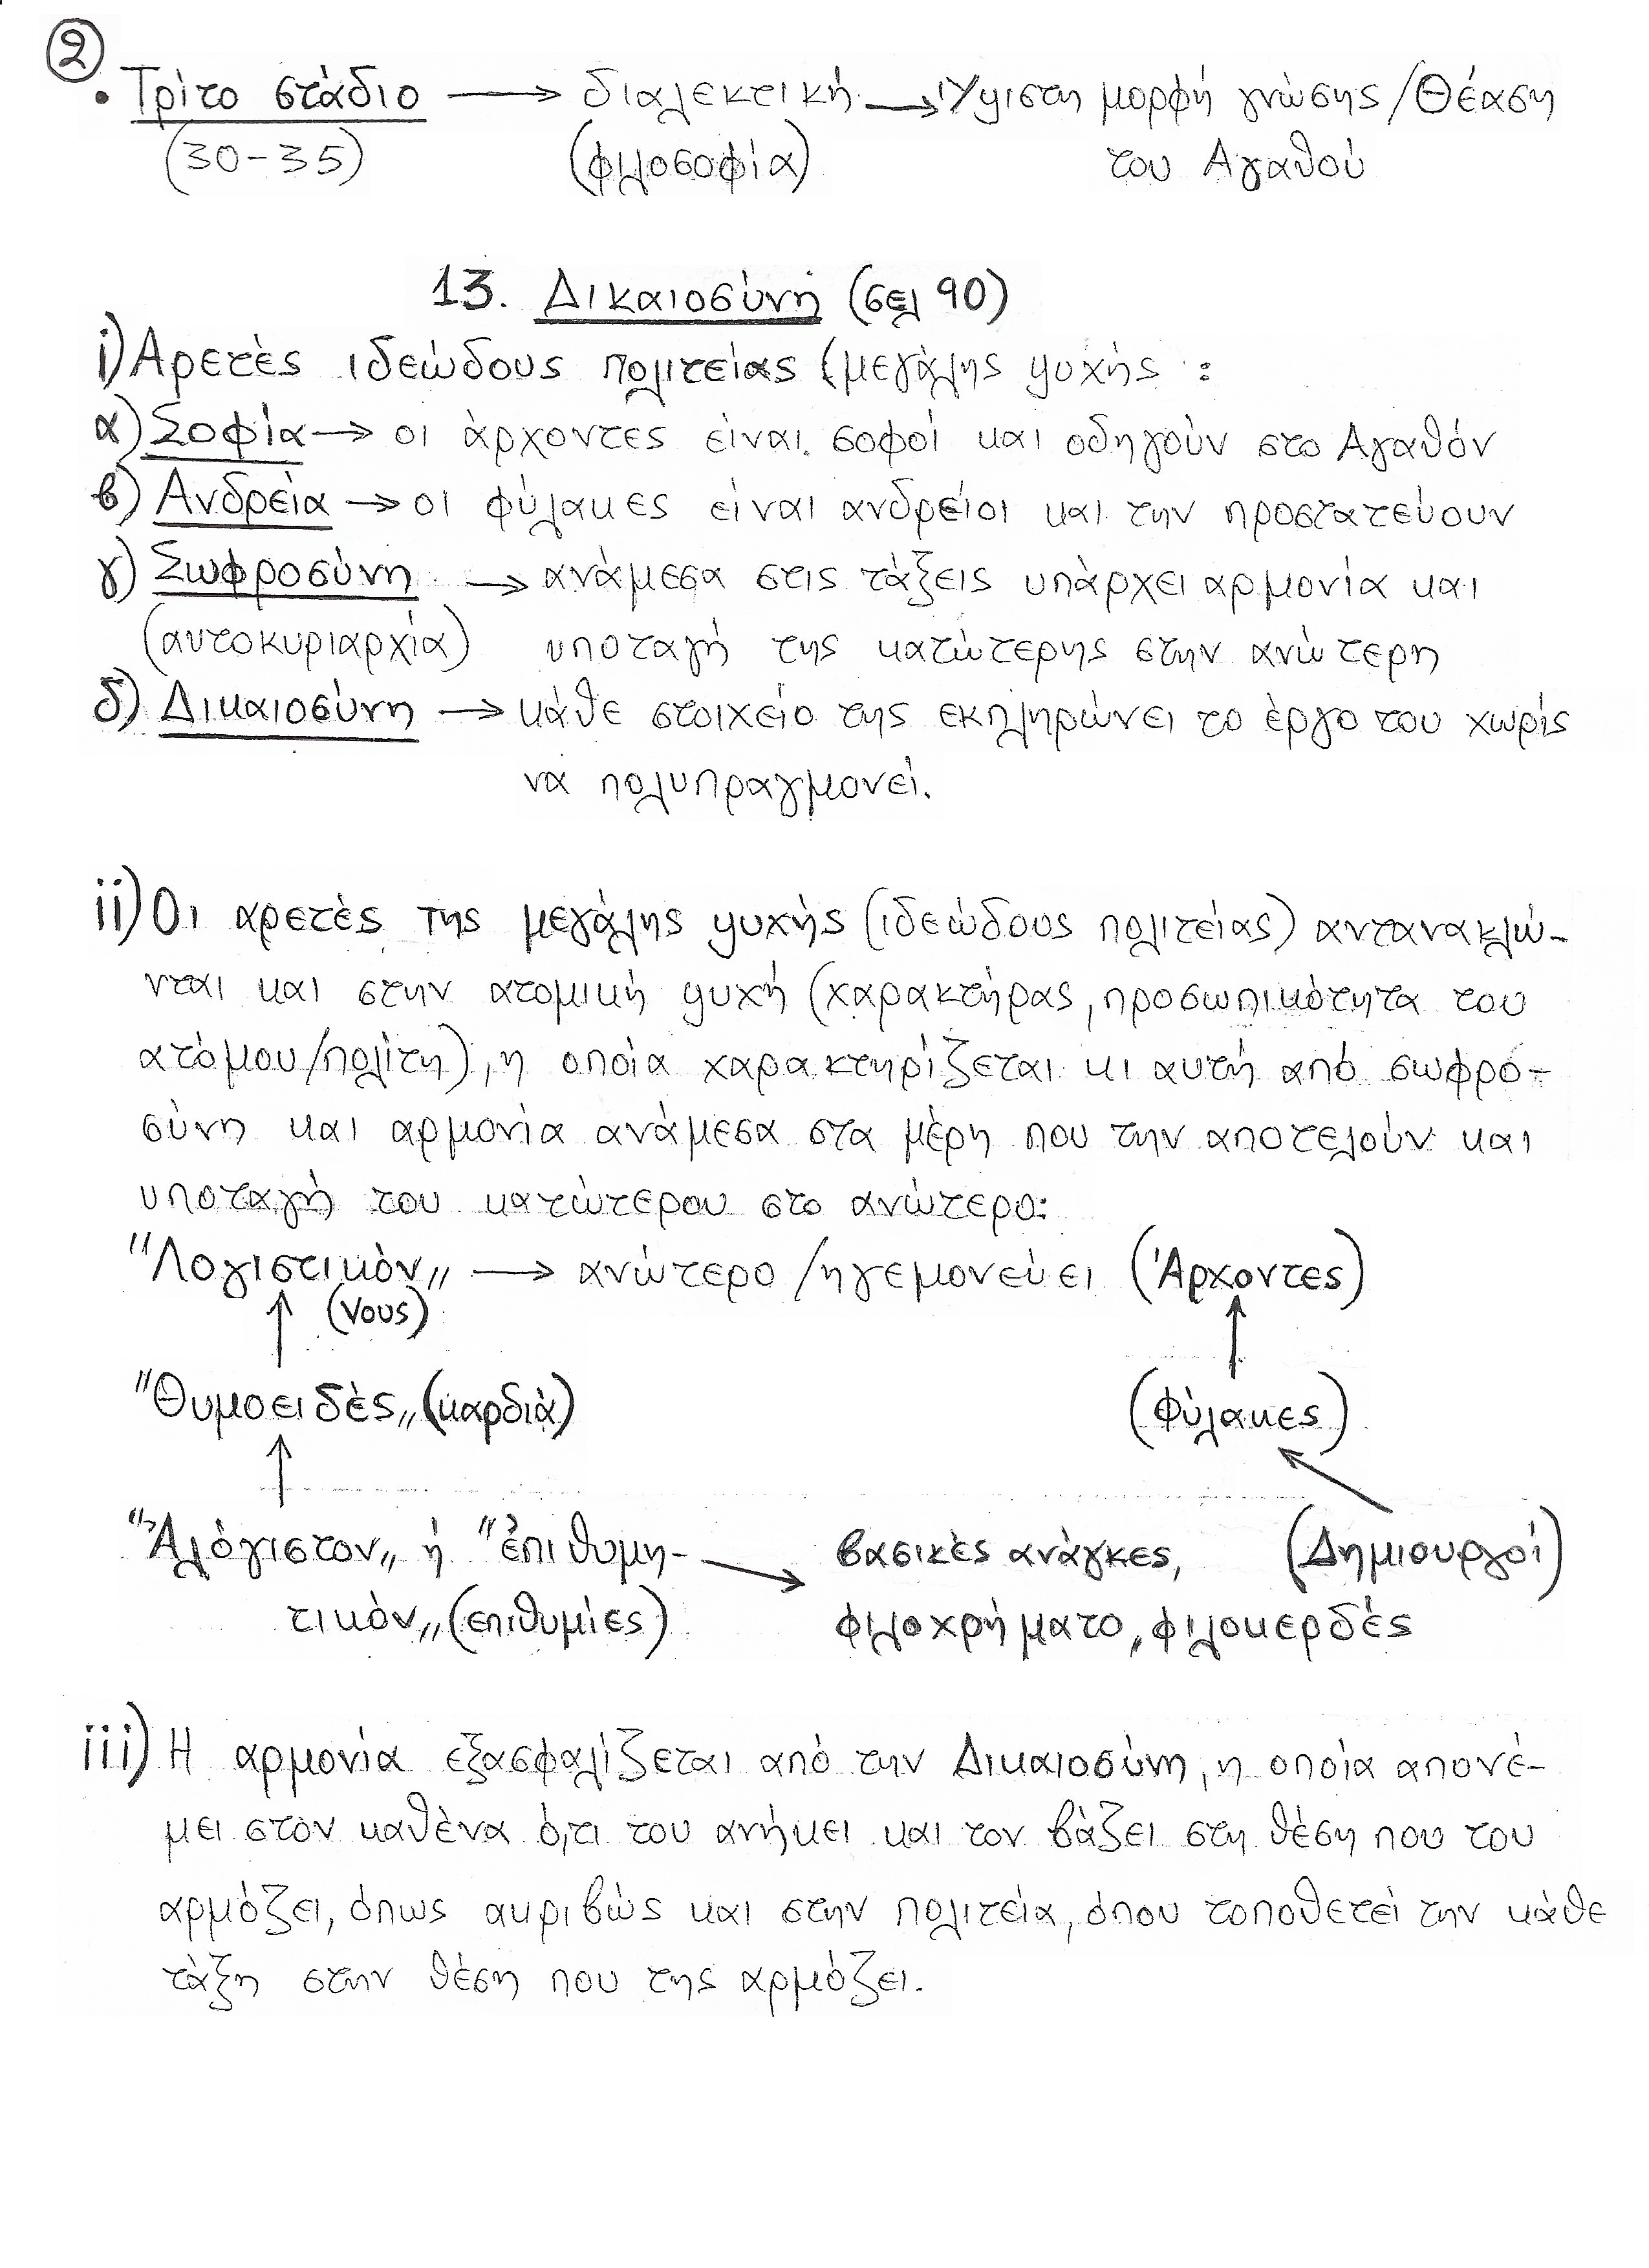 ②
• Τρίτο στάδιο → διαλεκτική → Ύψιστη μορφή γνώσης/Θέαση
(30-35) (φιλοσοφία) του Αγαθού
13. Δικαιοσύνη (σελ 90)
i) Αρετές ιδεώδους πολιτείας (μεγάλης ψυχής :
α) Σοφία → οι άρχοντες είναι σοφοί και οδηγούν στο Αγαθόν
β) Ανδρεία → οι φύλακες είναι ανδρείοι και την προστατεύουν
γ) Σωφροσύνη → ανάμεσα στις τάξεις υπάρχει αρμονία και
(αυτοκυριαρχία) υποταγή της κατώτερης στην ανώτερη
δ) Δικαιοσύνη → κάθε στοιχείο της εκπληρώνει το έργο του χωρίς
να πολυπραγμονεί.
ii) Οι αρετές της μεγάλης ψυχής (ιδεώδους πολιτείας) αντανακλώ-
νται και στην ατομική ψυχή (χαρακτήρας, προσωπικότητα του
ατόμου/πολίτη), η οποία χαρακτηρίζεται κι αυτή από σωφρο-
σύνη και αρμονία ανάμεσα στα μέρη που την αποτελούν και
υποταγή του κατώτερου στο ανώτερο:
"Λογιστικόν" → ανώτερο/ηγεμονεύει (Άρχοντες)
↑ (νους) ↑
"Θυμοειδές" (καρδιά) (Φύλακες)
↑ ↖
"Ἀλόγιστον" ή "ἐπιθυμη- → βασικές ανάγκες, (Δημιουργοί)
τικόν" (επιθυμίες) φιλοχρήματο, φιλοκερδές
iii) Η αρμονία εξασφαλίζεται από την Δικαιοσύνη, η οποία απονέ-
μει στον καθένα ό,τι του ανήκει και τον βάζει στη θέση που του
αρμόζει, όπως ακριβώς και στην πολιτεία, όπου τοποθετεί την κάθε
τάξη στην θέση που της αρμόζει.